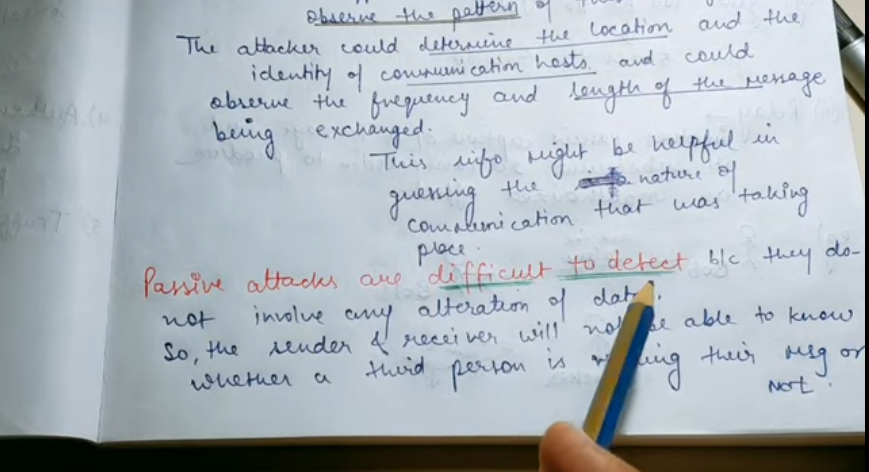 observe the pattern of
The attacker could determine the location and the
identity of communication hosts and could
observe the frequency and length of the message
being exchanged.
This info might be helpful in
guessing the nature of
communication that was taking
place.
Passive attacks are difficult to detect b/c they do-
not involve any alteration of data.
So, the sender & receiver will not be able to know
whether a third person is their msg or
not.